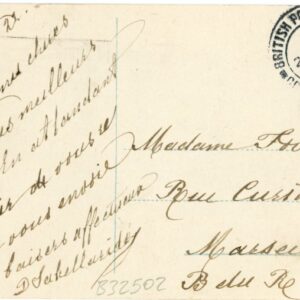 mes chères
meilleurs
En attendant
de vous re
vous envoie
baisers affectueux
D Sakellarides
BRITISH P
Madame
Rue
Marse
B du R
B32502